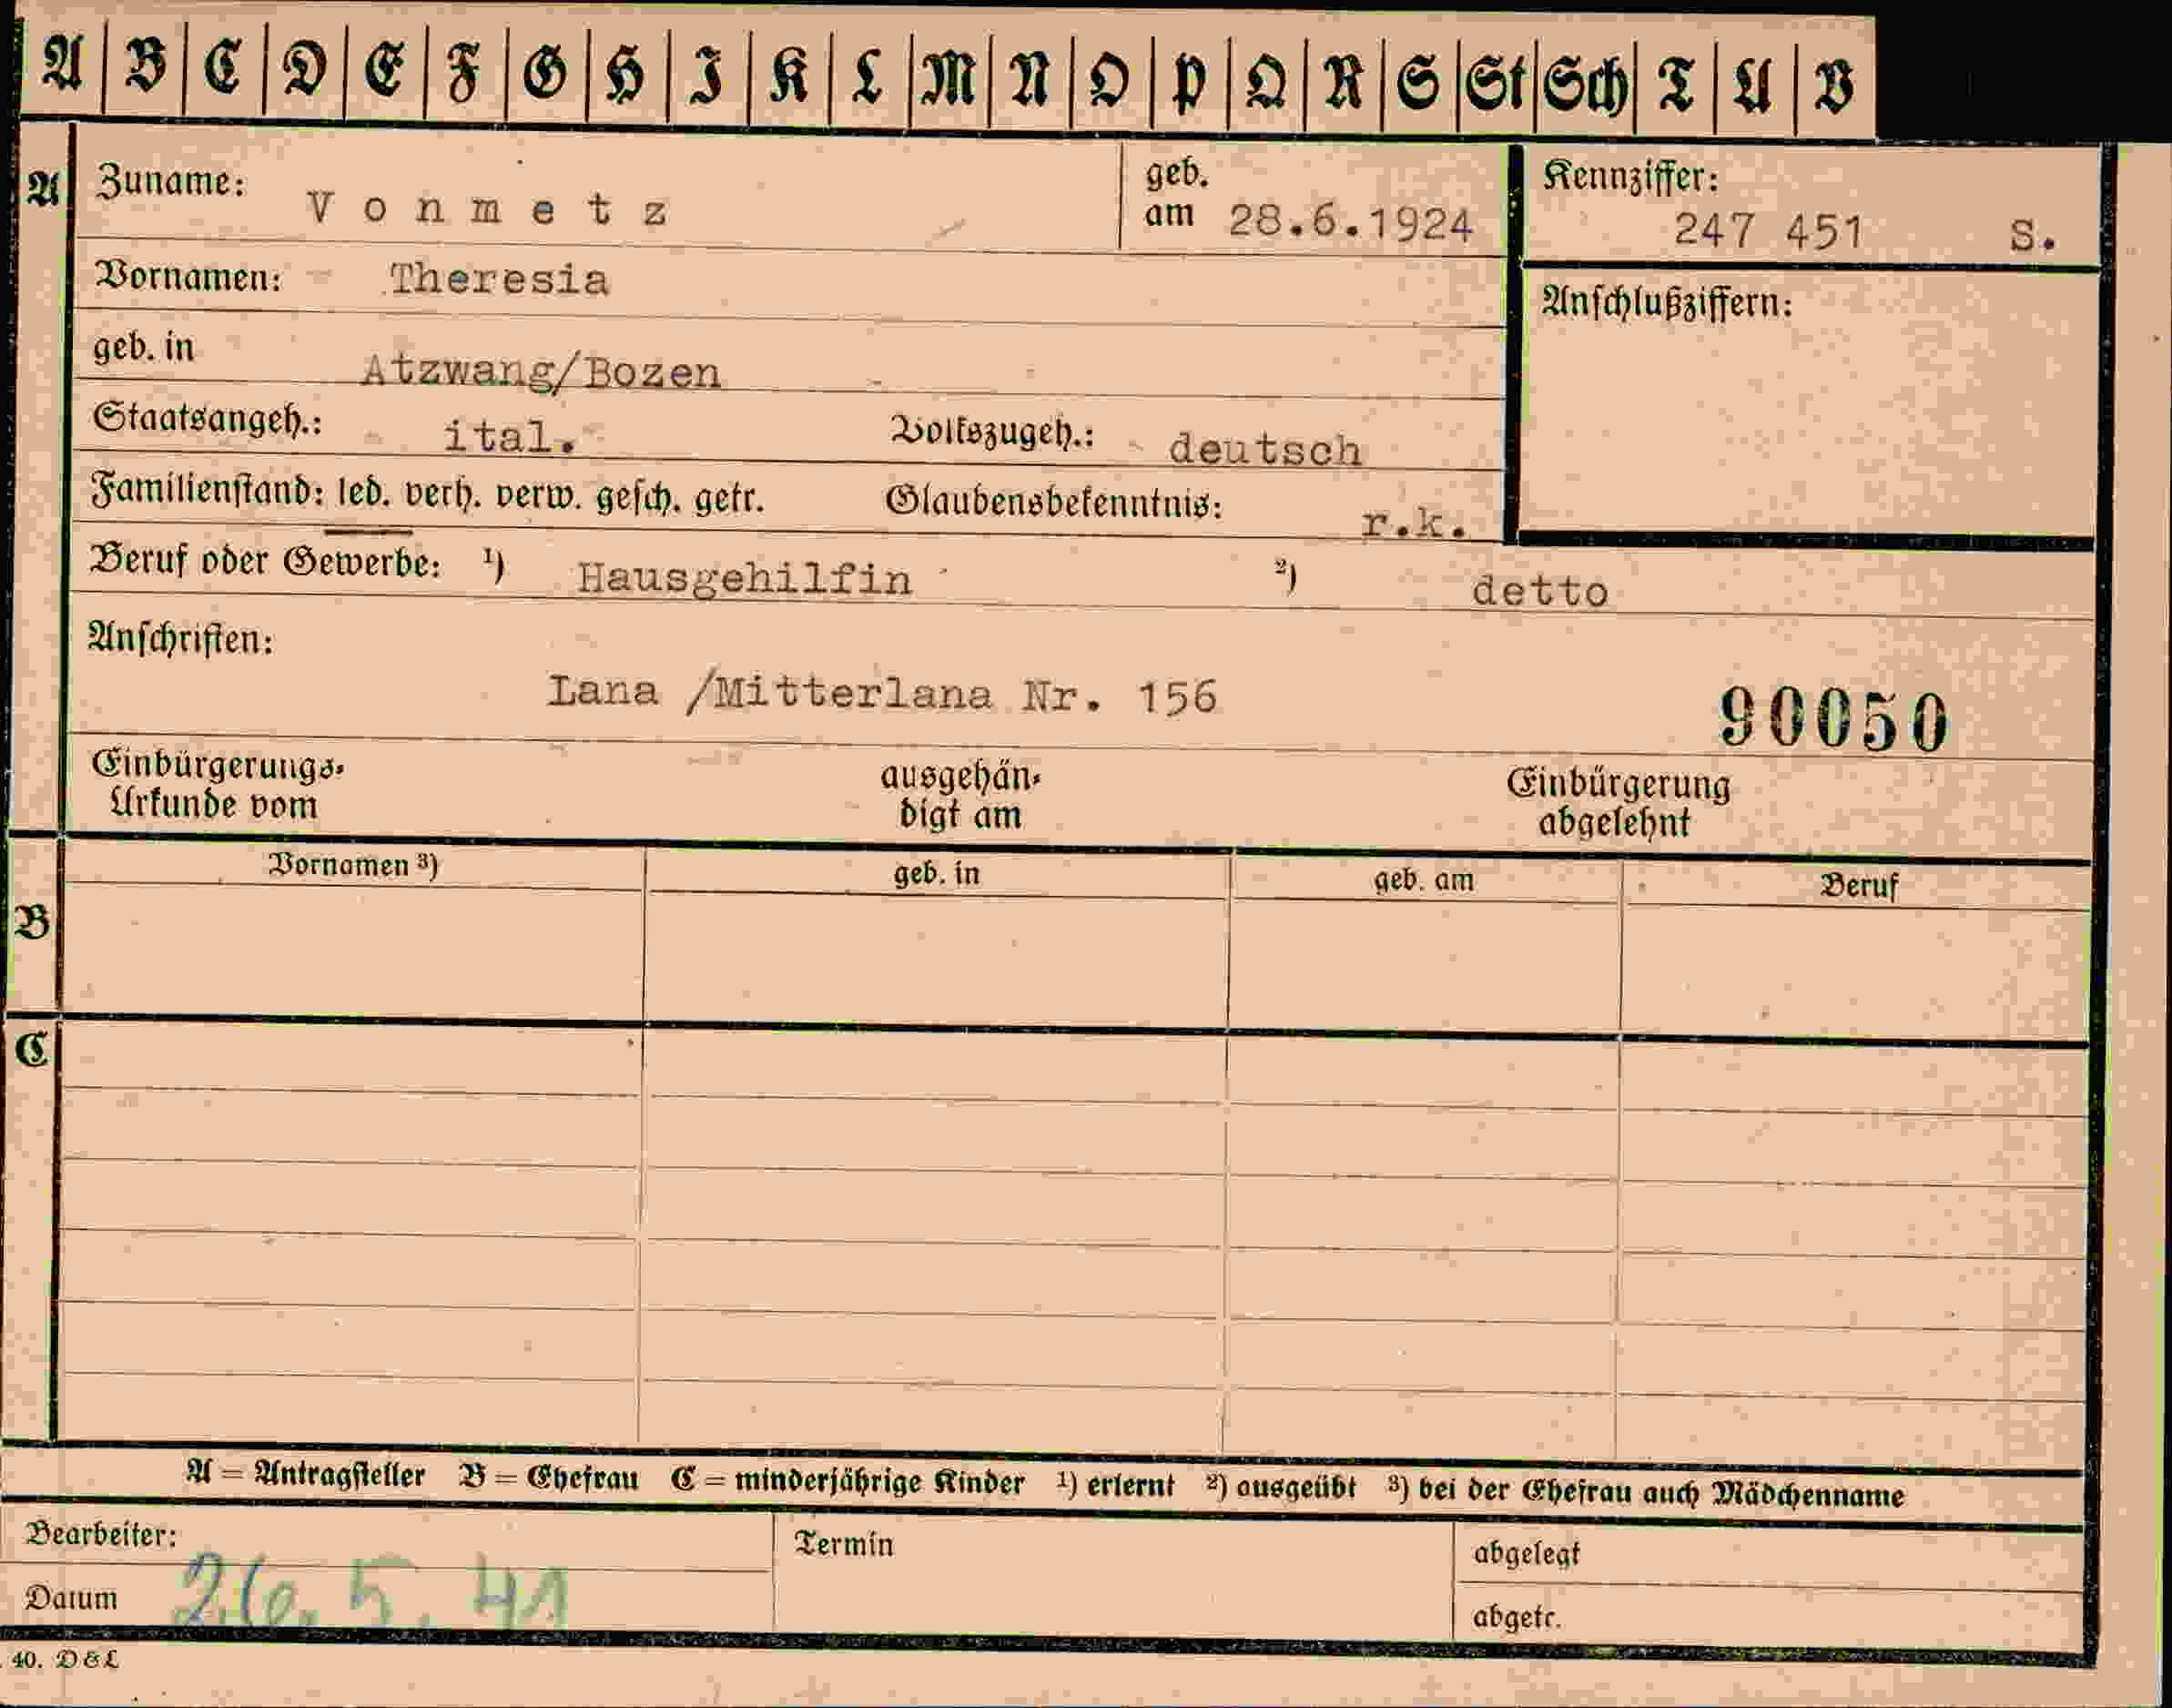 A B C D E F G H I K L M N O P Q R S St Sch T U V
A
Zuname: Vonmetz
geb. am 28.6.1924
Kennziffer: 247 451 S.
Vornamen: Theresia
Anschlußziffern:
geb. in Atzwang/Bozen
Staatsangeh.: ital. Volkszugeh.: deutsch
Familienstand: led. verh. verw. gesch. getr. Glaubensbekenntnis: r.k.
Beruf oder Gewerbe: 1) Hausgehilfin 2) detto
Anschriften:
Lana /Mitterlana Nr. 156
90050
Einbürgerungs- ausgehän- Einbürgerung
Urkunde vom digt am abgelehnt
Vornamen 3) geb. in geb. am Beruf
B
C
A = Antragsteller B = Ehefrau C = minderjährige Kinder 1) erlernt 2) ausgeübt 3) bei der Ehefrau auch Mädchenname
Bearbeiter: Termin abgelegt
Datum 26.5.41 abgetr.
40. D & L